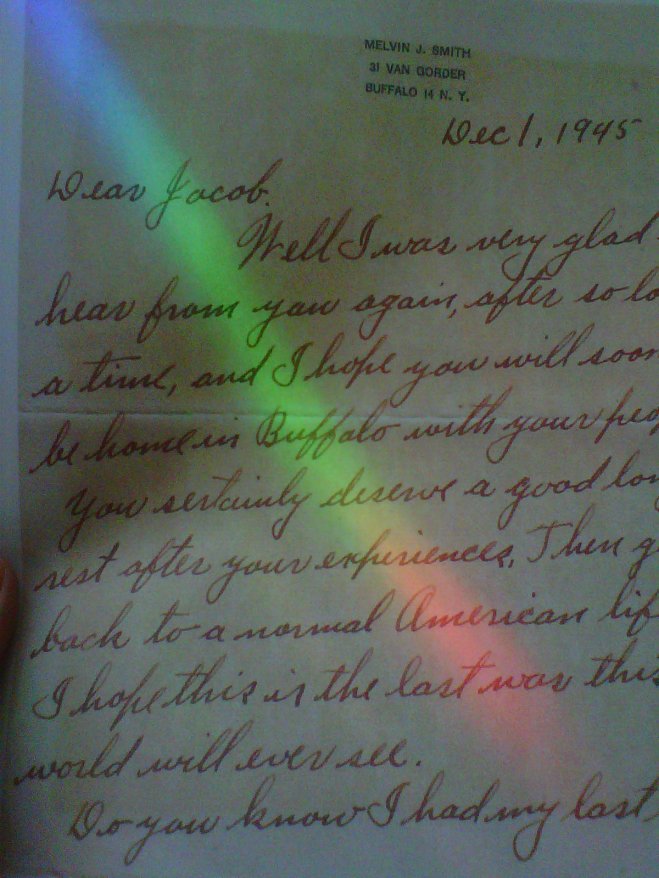 MELVIN J. SMITH
31 VAN GORDER
BUFFALO 14 N. Y.
Dec 1, 1945
Dear Jacob.
Well I was very glad
hear from you again, after so lo
a time, and I hope you will soon
be home in Buffalo with your peo
You sertainly deserve a good lon
rest after your experiences. Then g
back to a normal American lif
I hope this is the last war this
world will ever see.
Do you know I had my last